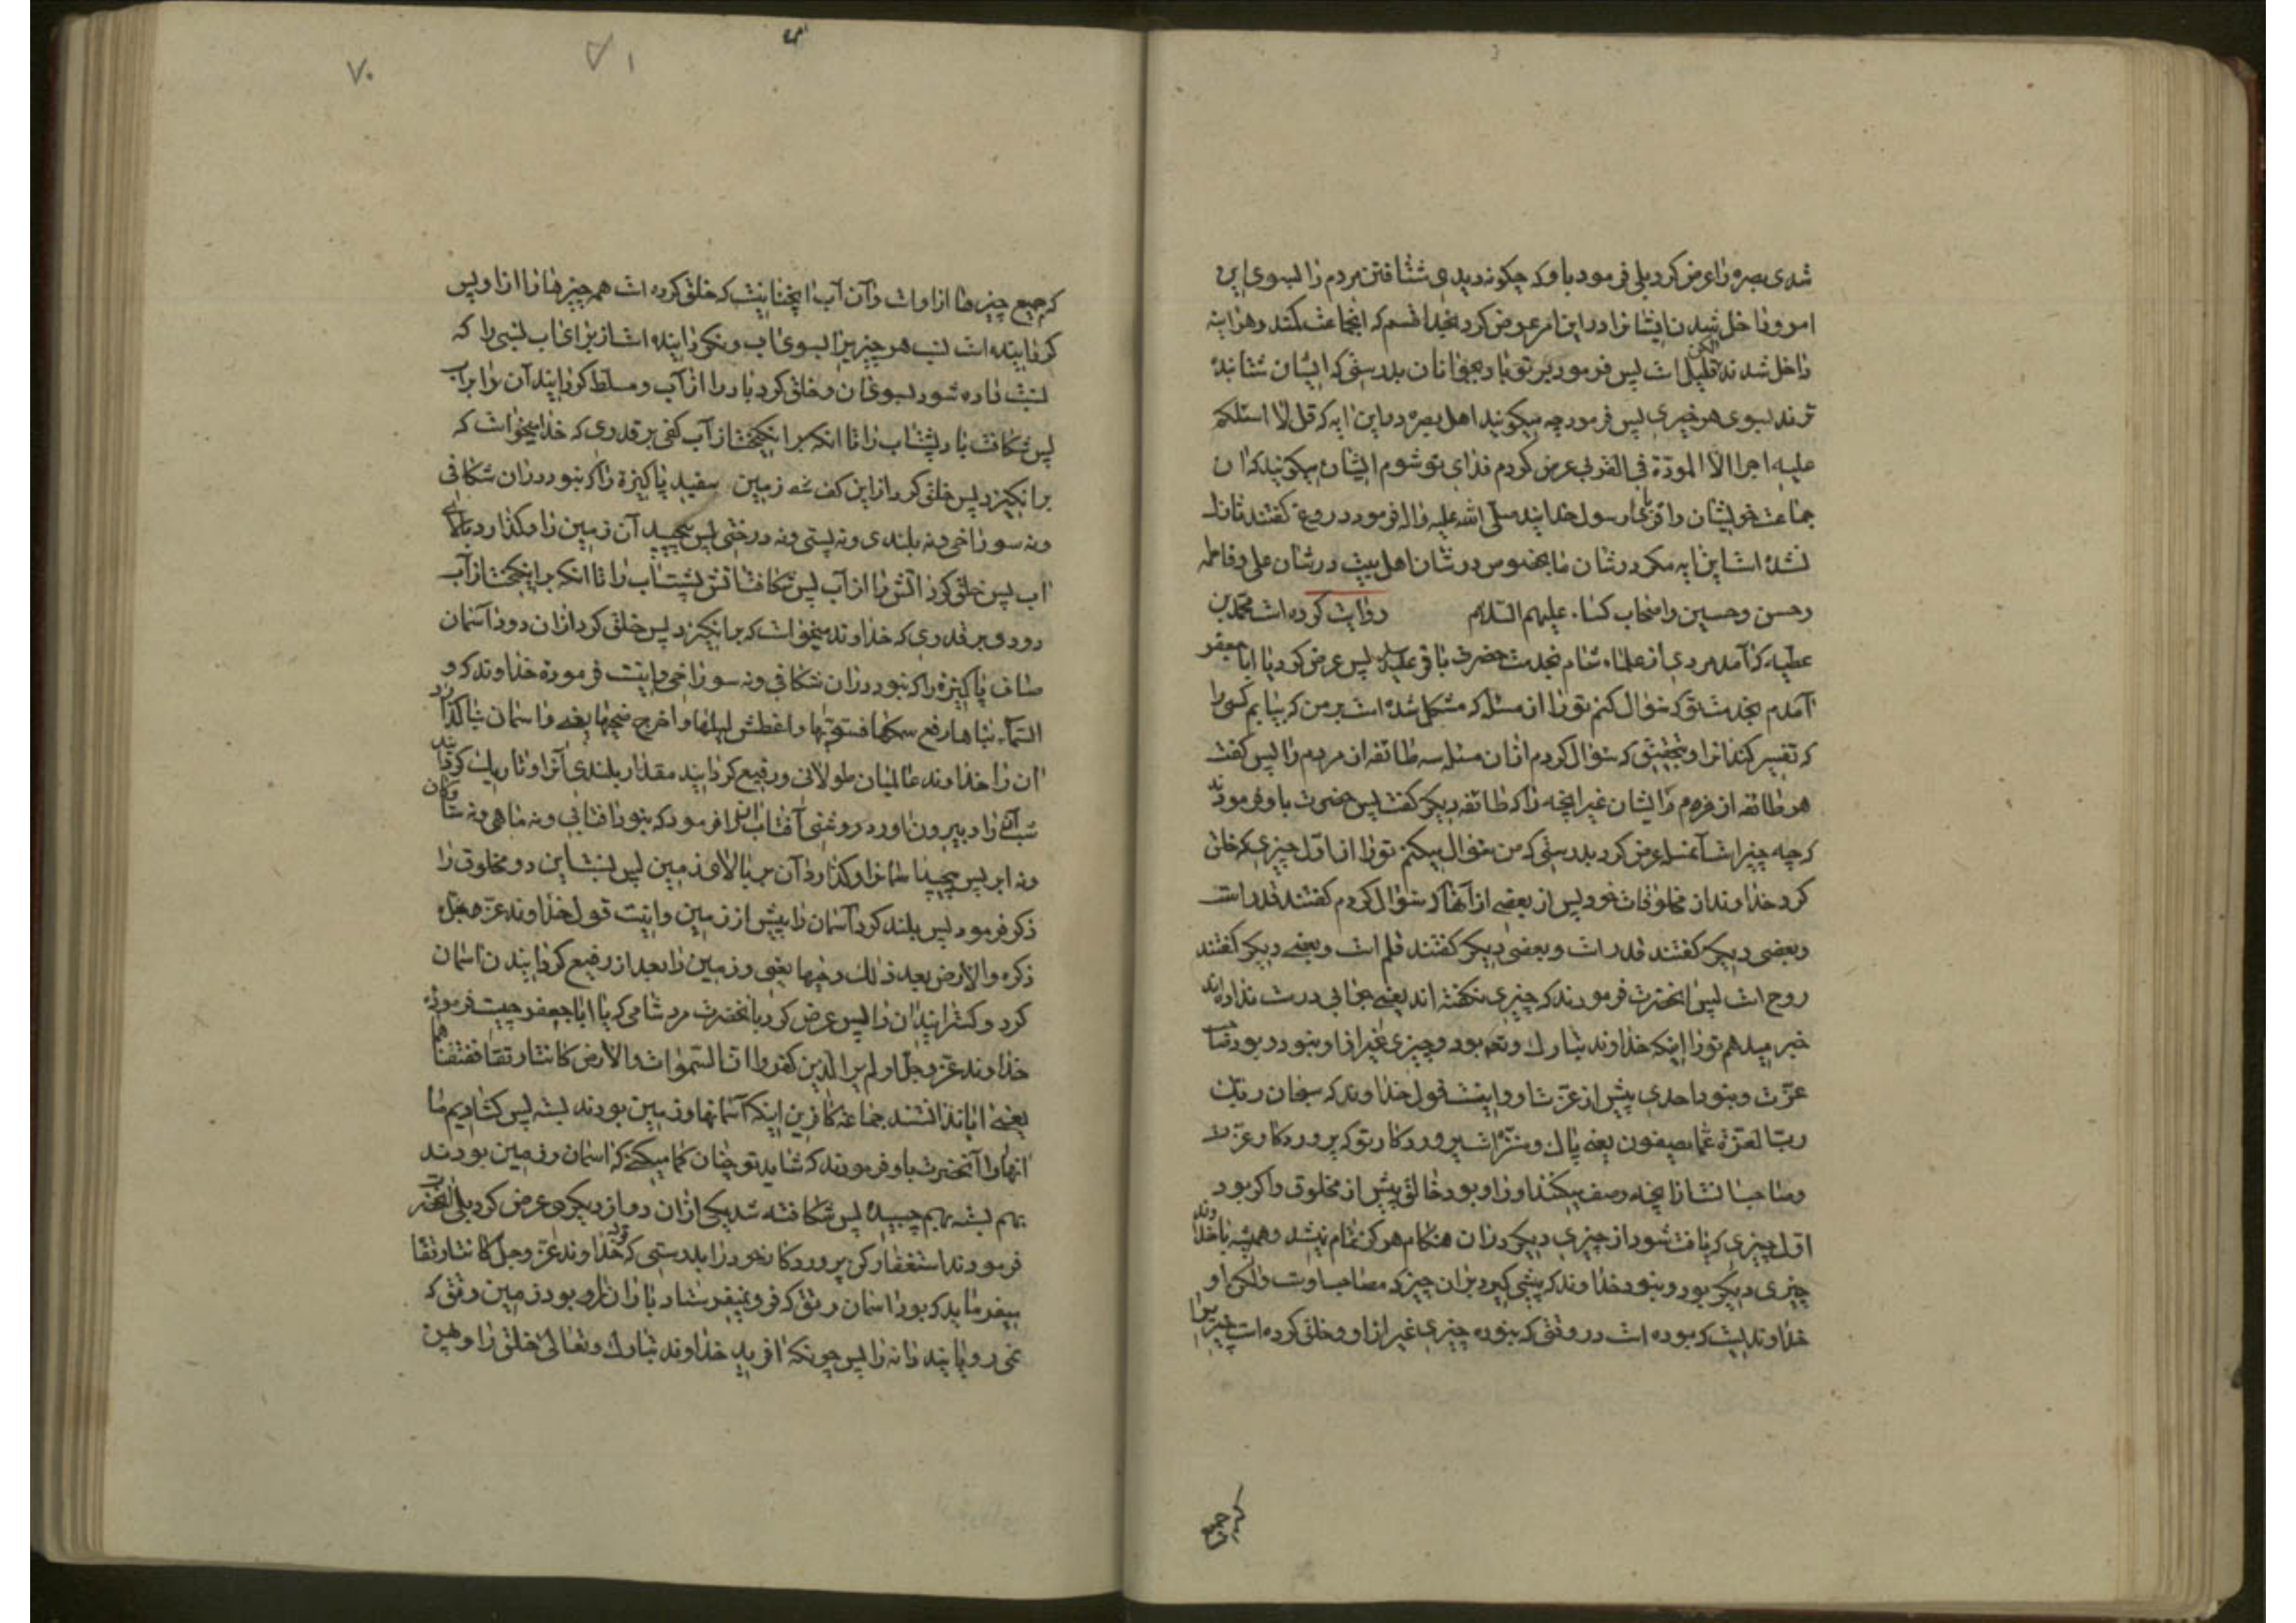 شدی بصره را عرض کرد بلی فرمود باو که چکونه دیدی شتافتن مردم را بسوی این
امر و داخل شدن ایشانرا در این امر عرض کرد بخدا قسم که انجماعت کمند و هر اینه
داخل شدند لکن قلیل است پس فرمود بر تو باد بجوانان بدرستی که ایشان شتابنده
ترند بسوی هر خیری پس فرمود چه میکویند اهل بصره در این ایه که قل لا اسئلکم
علیه اجرا الا المودّة فی القربی عرض کردم فدای تو شوم ایشان میکویند که ان
جماعت خویشان و اقربای رسول خدایند صلی الله علیه واله فرمود دروغ کفتند نازل
نشده است این ایه مکر در شان ما بخصوص در شان اهل بیت در شان علی و فاطمه
و حسن و حسین و اصحاب کسا، علیهم السّلام روایت کرده است محمّد بن
عطیه که آمد مردی از علماء شام بخدمت حضرت باقر علیه السلم پس عرض کرد یا ابا جعفر
آمدم بخدمت تو که سؤال کنم تو را از مسئله که مشکل شده است بر من که بیابم کسی را
که تفسیر کند انرا و بتحقیق که سؤال کردم از ان مسئله سه طائفه از مردم را پس کفت
هر طائفه از مردم را ایشان غیر انچه را که طائفه دیکر کفت پس حضرت باو فرمودند
که چه چیز است آن مسئله عرض کرد بدرستی که من سؤال میکنم تو را از اوّل چیزی که خلق
کرد خداوند از مخلوقات خود پس از بعضی از آنها که سؤال کردم کفتند قدر است
و بعضی دیکر کفتند قدر است و بعضی دیکر کفتند قلم است و بعضی دیکر کفتند
روح است پس انحضرت فرمودند که چیزی نکفته اند یعنی جوابی درست نداده اند
خبر میدهم تو را اینکه خداوند تبارک و تعالی بود و چیزی غیر از او نبود و بود صاحب
عزّت و نبود احدی پیش از عزّت او و اینست قول خداوند که سبحان ربّک
ربّ العزّة عمّا یصفون یعنی پاک و منزّه است پروردکار تو که پروردکار عزّت
و صاحب انست از انچه وصف میکنند او را و بود خالق پیش از مخلوق و اکر بود
اوّل چیزی که یافت شود از چیزی دیکر در ان هنکام هرکز تمام نمیشد و همیشه با خداوند
چیزی دیکر بود و نبود خداوند که پیشی کیرد بر ان چیز که مصاحب اوست و لکن او
خداوندیست که بوده است در وقتی که نبوده چیزی غیر از او و خلق کرده است چیزیرا
که جمیع
۷۰
۷۱
که جمیع چیزها از اوست و آن آب انچنانیست که خلق کرده است همه چیزها را از او پس
کردانیده است نسب هر چیزیرا بسوی اب و نکردانیده است از برای اب نسبی را که
نسبت داده شود بسوی ان و خلق کرد باد را از آب و مسلط کردانید آن را بر اب
پس شکافت باد پشت اب را تا انکه برانکیخت از آب کفی بر قدری که خدا میخواست که
برانکیزد پس خلق کرد از این کف زمین سفید پاکیزه را که نبود در ان شکافی
و نه سوراخی و نه بلندی و نه پستی و نه درختی پس پیچید آن زمین را و کذارد بالای
اب پس خلق کرد اتش را از آب پس شکافت اتش پشت اب را تا انکه برانکیخت از آب
دودی بر قدری که خداوند میخواست که برانکیزد پس خلق کرد از ان دود آسمان
صاف پاکیزه را که نبود در ان شکافی و نه سوراخی و اینست فرموده خداوند که و
السّماء بناها رفع سمکها فسوّیها و اغطش لیلها و اخرج ضحیها یعنی و اسمان بنا کذارد
ان را خداوند عالمیان طولانی و رفیع کردانید مقدار بلندی آنرا و تاریک کردانید
شب آنرا و بیرون اورد روشنی آفتاب انرا فرمود که نبود افتابی و نه ماهی و نه ستارکان
و نه ابر پس پیچید اسمانرا و کذارد آن بر بالای زمین پس نسبت این دو مخلوق را
ذکر فرمود پس بلند کرد آسمان را پیش از زمین و اینست قول خداوند عزّ
ذکره و الارض بعد ذلک دحیها یعنی و زمین را بعد از رفیع کردانیدن اسمان
کرد و کسترانید ان را پس عرض کرد بانحضرت مرد شامی که یا ابا جعفر چیست فرموده
خداوند عزّ و جلّ اولم یر الّذین کفروا انّ السّموات و الارض کانتا رتقا ففتقناهما
یعنی ایا ندانستند جماعه کافرین اینکه آسمانها و زمین بودند بسته پس کشادیم ما
انها را آنحضرت باو فرمودند که شاید تو چنان کمان میکنی که اسمان و زمین بودند
بهم بسته بهم چسبیده پس شکافته شد یکی از ان دو از دیکری عرض کرد بلی انحضرت
فرمودند استغفار کن پروردکار خود را بدرستی که قول خداوند عزّ و جلّ کانتا رتقا
میفرماید که بود اسمان رتق که فرو نمیفرستاد باران را و بود زمین رتق که
نمی رویانید دانه را پس چونکه افرید خداوند تبارک و تعالی خلق را و پهن